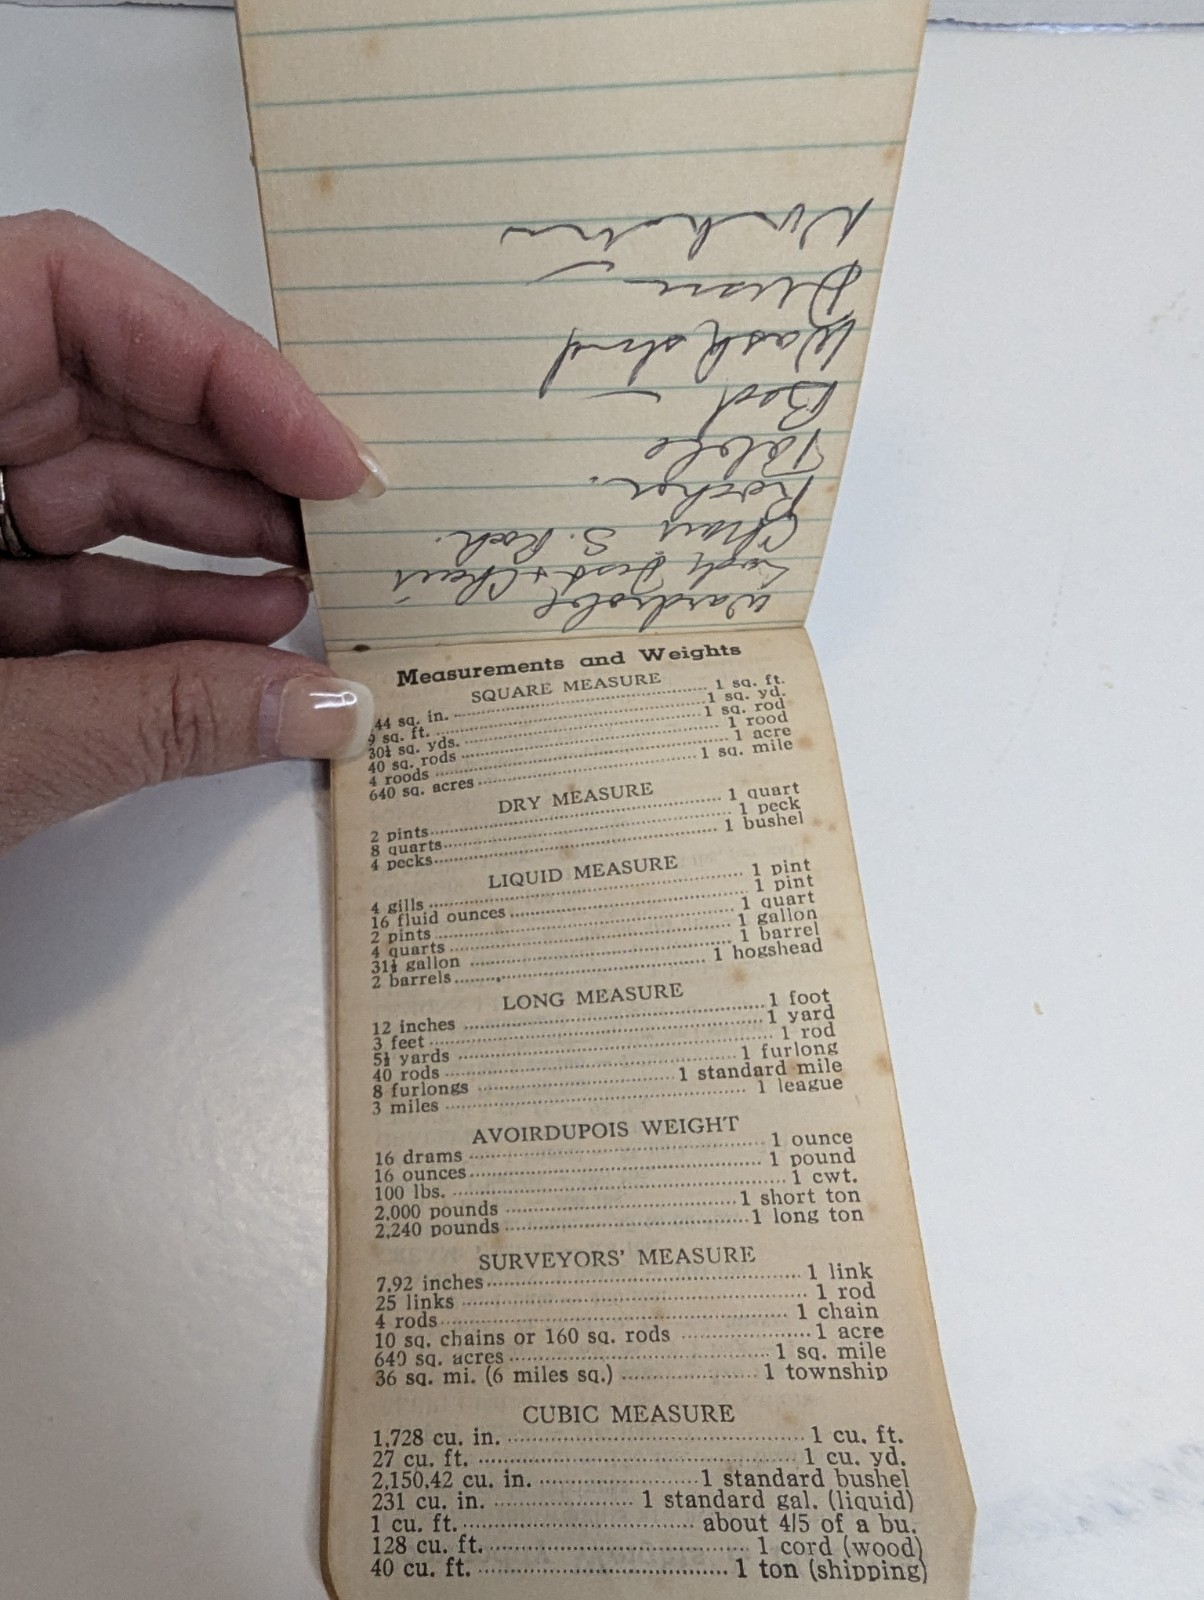 Wardrobe
Lady Desk + Chair
Chair S. Rock.
Rocker.
Table
Bed
Wash stand
Measurements and Weights
SQUARE MEASURE
144 sq. in. 1 sq. ft.
9 sq. ft. 1 sq. yd.
30¼ sq. yds. 1 sq. rod
40 sq. rods 1 rood
4 roods 1 acre
640 sq. acres 1 sq. mile
DRY MEASURE
2 pints 1 quart
8 quarts 1 peck
4 pecks 1 bushel
LIQUID MEASURE
4 gills 1 pint
16 fluid ounces 1 pint
2 pints 1 quart
4 quarts 1 gallon
31½ gallon 1 barrel
2 barrels 1 hogshead
LONG MEASURE
12 inches 1 foot
3 feet 1 yard
5½ yards 1 rod
40 rods 1 furlong
8 furlongs 1 standard mile
3 miles 1 league
AVOIRDUPOIS WEIGHT
16 drams 1 ounce
16 ounces 1 pound
100 lbs. 1 cwt.
2,000 pounds 1 short ton
2,240 pounds 1 long ton
SURVEYORS' MEASURE
7.92 inches 1 link
25 links 1 rod
4 rods 1 chain
10 sq. chains or 160 sq. rods 1 acre
640 sq. acres 1 sq. mile
36 sq. mi. (6 miles sq.) 1 township
CUBIC MEASURE
1,728 cu. in. 1 cu. ft.
27 cu. ft. 1 cu. yd.
2,150.42 cu. in. 1 standard bushel
231 cu. in. 1 standard gal. (liquid)
1 cu. ft. about 4/5 of a bu.
128 cu. ft. 1 cord (wood)
40 cu. ft. 1 ton (shipping)